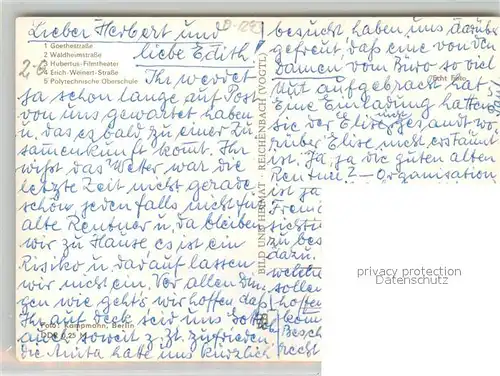 Lieber Herbert und
liebe Edith!
1 Goethestraße
2 Waldheimstraße
3 Hubertus-Filmtheater
4 Erich-Weinert-Straße
5 Polytechnische Oberschule
Ihr werdet
ja schon lange auf Post
von uns gewartet haben
u. das es bald zu einer Zu
samenkunft kommt. Ihr
wißt das Wetter war die
letzte Zeit nicht gerade
schön jedenfalls nicht für
alte Rentner u. da bleiben
wir zu Hause es ist ein
Risiko u. darauf lassen
wir nicht ein. Vor allen din
gen wie geht's wir hoffen das
Ihr auf deck seid uns
auch soweit z. Zt. zufrieden
die Anita hatte uns kürzlich
Foto: Kampmann, Berlin
BILD UND HEIMAT · REICHENBACH (VOGTL)
besucht haben uns darüber
gefreut, daß eine von den
Damen vom Büro so viel
Mut aufgebracht hat
Echt Foto
Eine Einladung hatten
sie der Elise
rüber Elise nicht erstaunt
ist. Ja, ja die guten alten
Rentner? — Organisation
ist ja
zu bes
dazu
sollen
hoffen
Besch
recht
privacy protection
Datenschutz